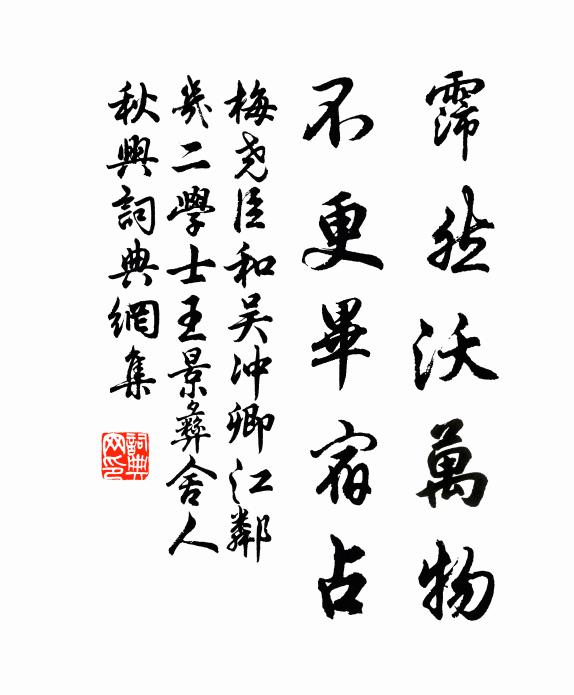 霈然沃萬物
不更畢宿占
梅堯臣和吴冲卿江鄰
幾二學士王景彝舍人
秋興詞典網集
詞典
网印